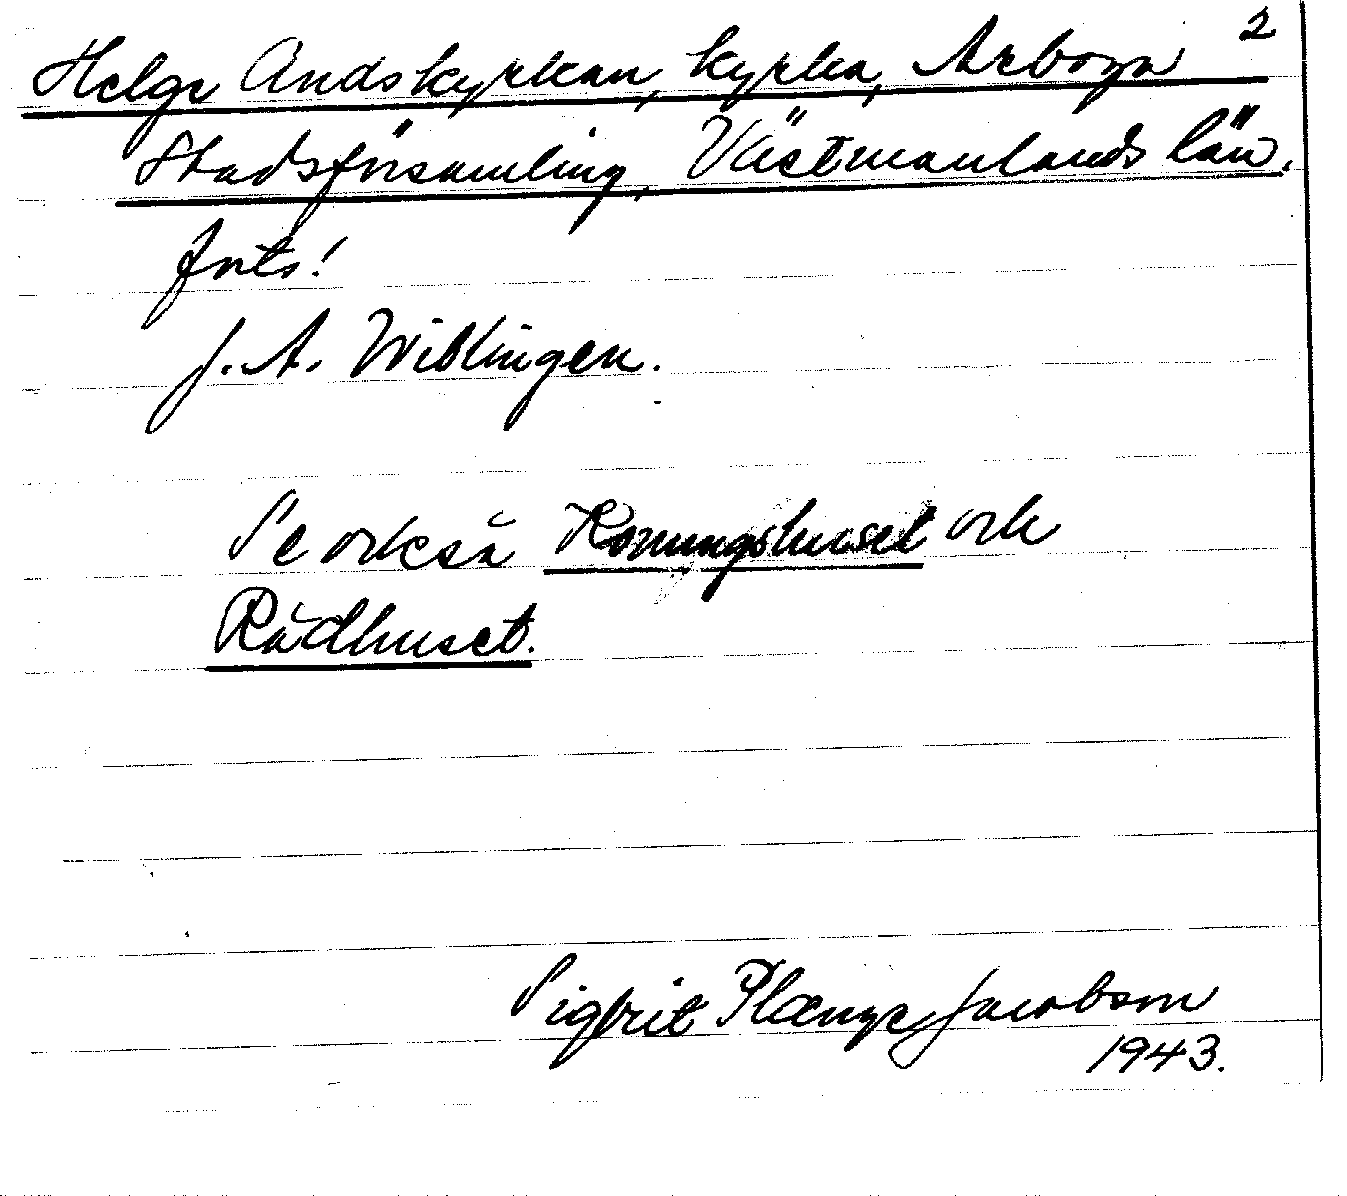 2
Helge Andskyrkan, kyrka, Arboga
Stadsförsamling, Västmanlands län.
forts!
J. A. Wiblingen.
Se också Konungshuset och
Rådhuset.
Sigfrit Jacobson
1943.